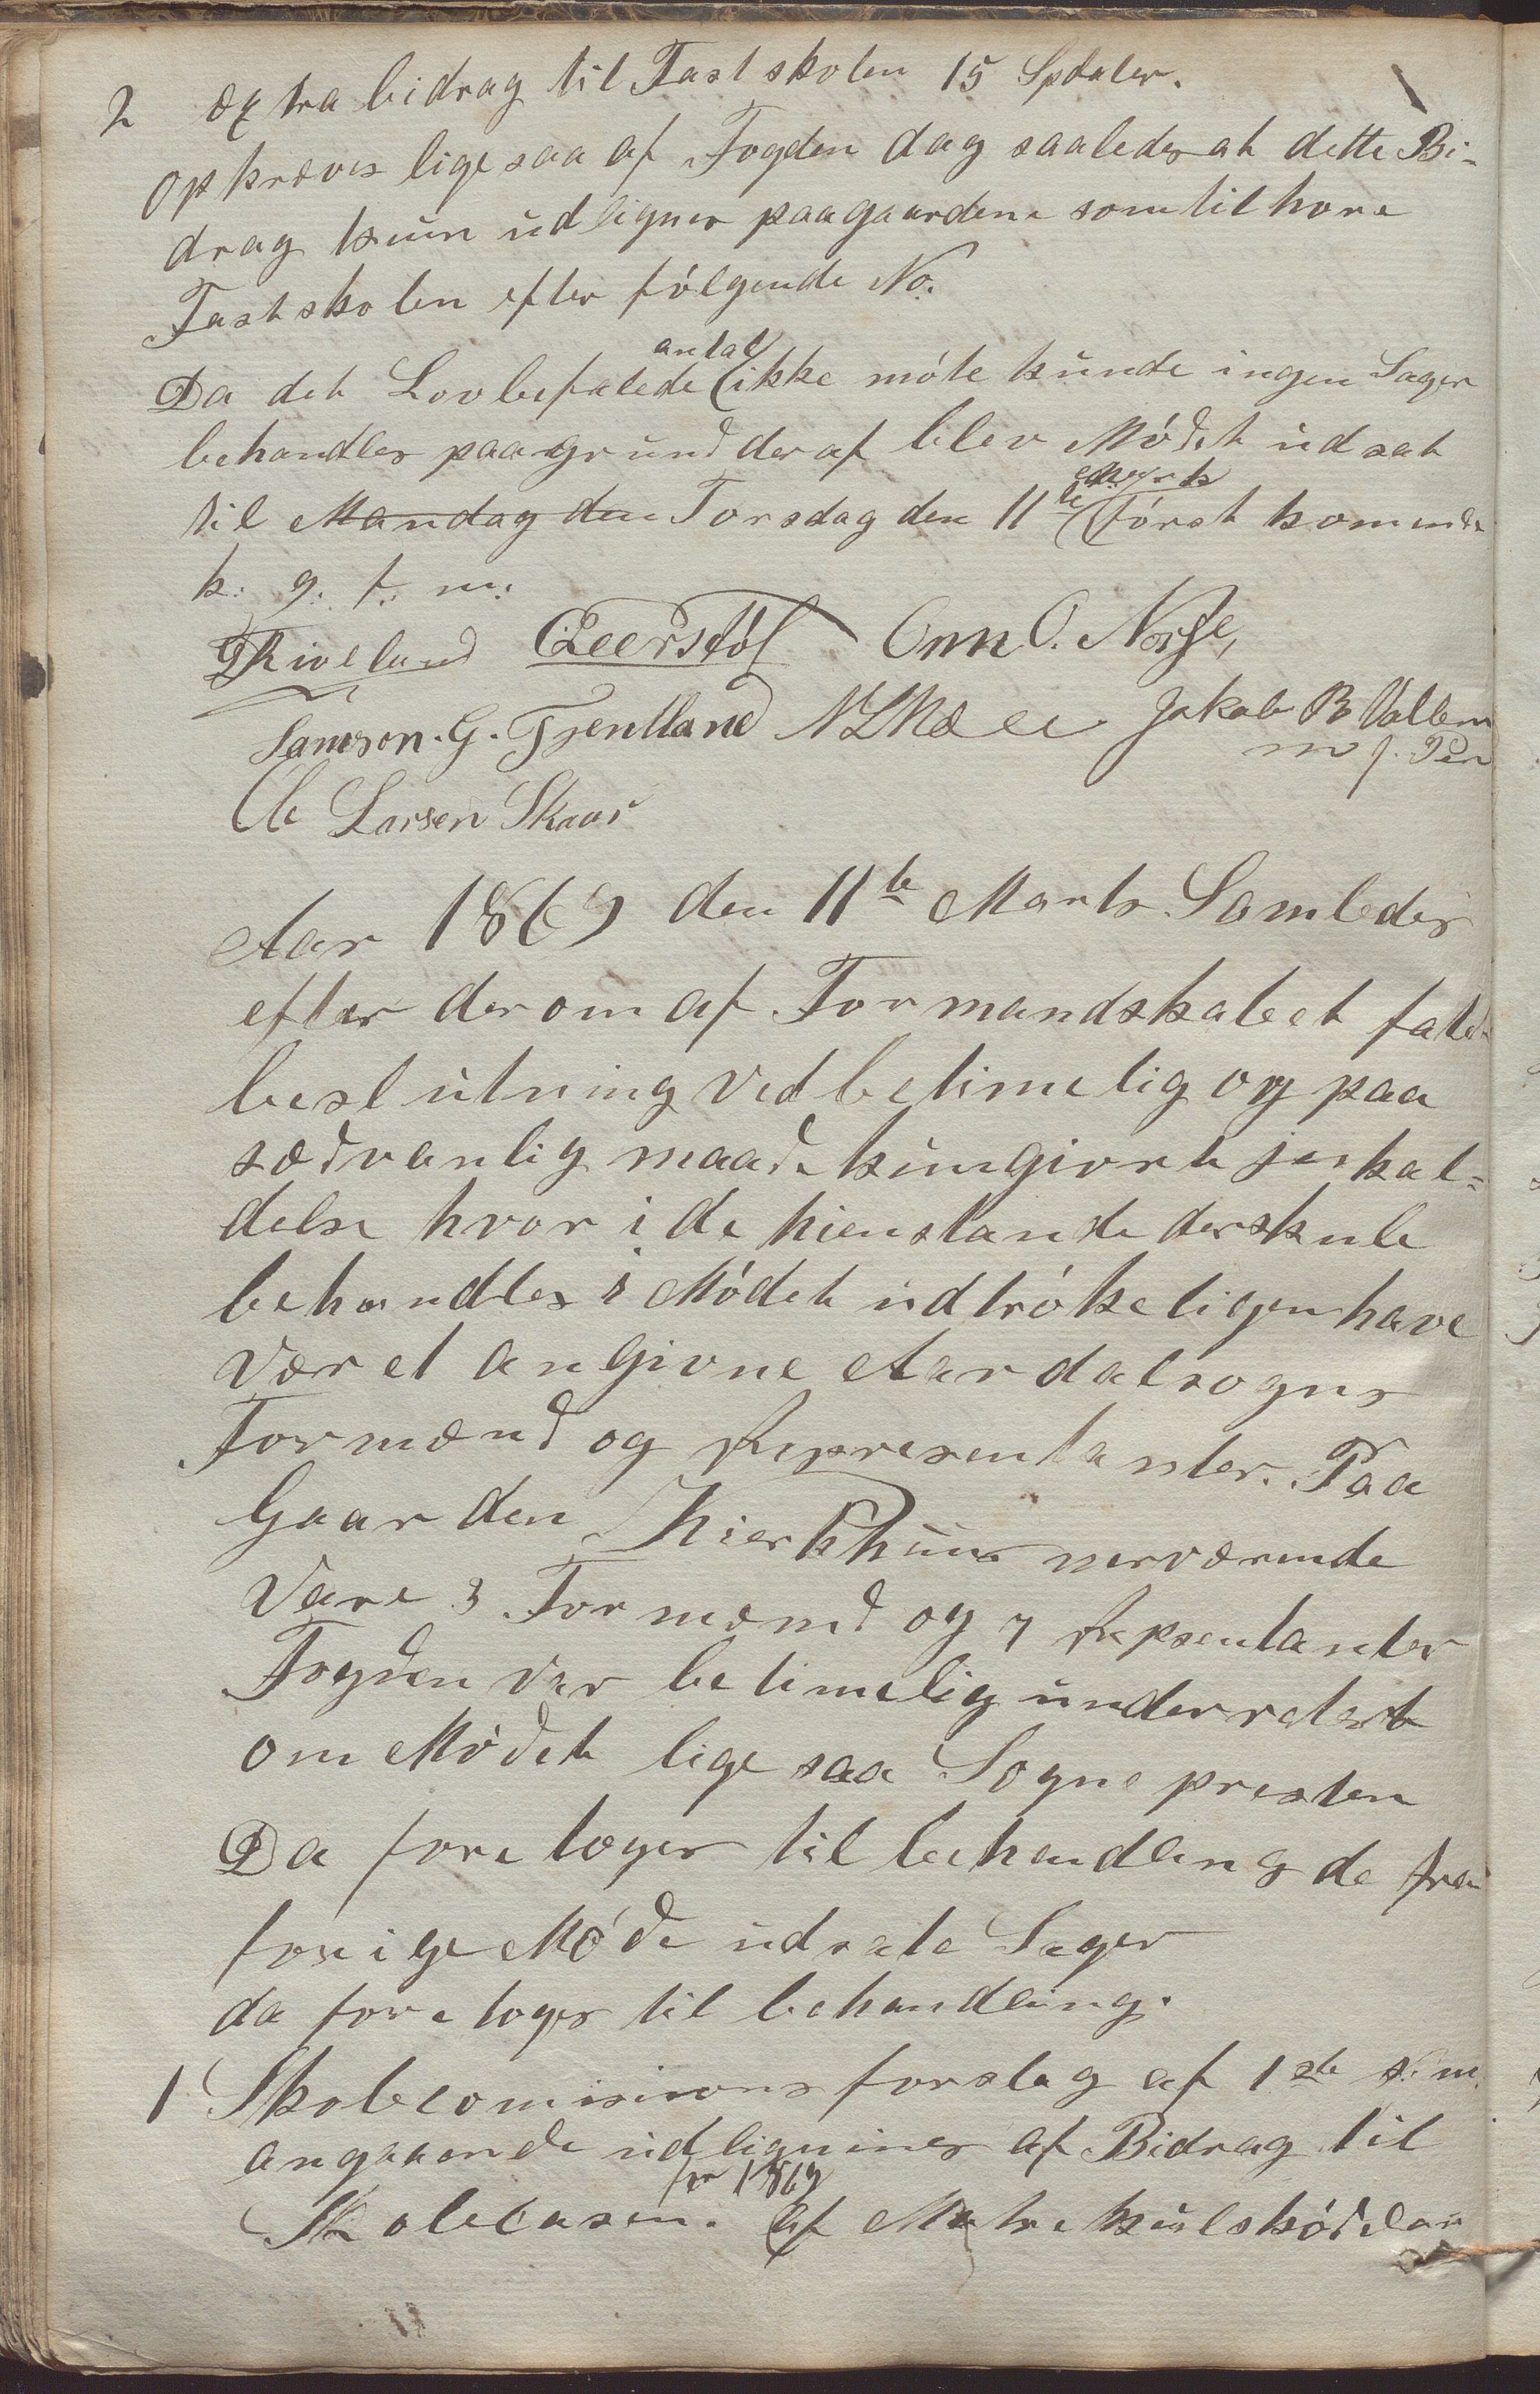 2 extra bidrag til Fastskolen 15 Spdaler.
Opkræves lige saa af Fogden dag saaledes at dette Bi-
drag kun udligner paa gaardene som tilhøre
Fastskolen efter følgende No.
antal
Da det Lovbefalede ikke møte kunde ingen Sager
behandles paa grund deraf blev Mødet udsat
Marts
til Mandag den Torsdag den 11te først komende
k: g: f: m:
Thiveland Osmn O. Norse,
Samson. G. Tjentland Jakob B Valleen
m f. Pen
Ole Larsen Skaar
Aar 1869 den 11te Marts Samledes
efter derom af Formandskabet fatede
beslutning ved betimelig og paa
sædvanlig maade kungivne jenkal-
delse hvor i de hienstande der skule
behandles i Mødet udtrøkeligen have
været angivne Aardal sogns
Formænd og Representanter. Paa
Gaarden Kierkhuus nerværende
vare 3 Formænd og 7 Repsentanter
Fogden var betimelig underretet
om Mødet lige saa Sognepresten
Da foretoges til behandling de fra
forige Møde udsate Sager
da foretoges til behandling.
1 Skolecomisions forslag af 1ste s. m.
angaaende udligning af Bidrag til
for 1869
Skolecasen. af Matrikulskøddelan